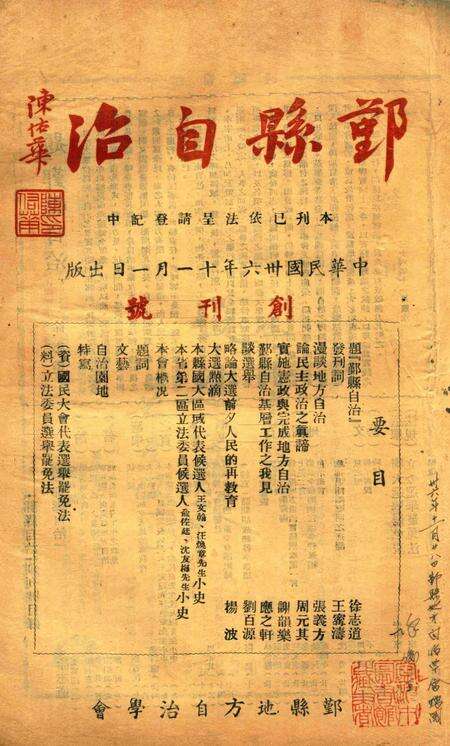 鄞縣自治
陳佑華
本刊已依法呈請登記中
中華民國卅六年十一月一日出版
創刊號
要目
題『鄞縣自治』 徐志道
發刊詞 王寵濤
漫談地方自治 張義方
論民主政治之真諦 周元其
實施憲政與完成地方自治 謝韻樂
鄞縣自治基層工作之我見 應之軒
談選舉 劉百源
略論大選前夕人民的再教育 楊波
大選點滴
本縣國大區域代表候選人王文翰、汪煥章先生小史
本省第二區立法委員候選人 沈友梅先生小史
本會概况
題詞
文藝
自治園地
特寫
(資)國民大會代表選舉罷免法
(料)立法委員選舉罷免法
鄞縣地方自治學會